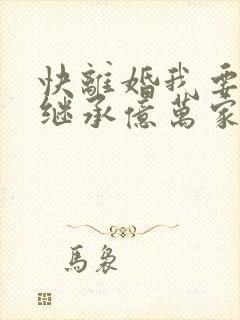 快離婚我要
继承億萬家
馬裊